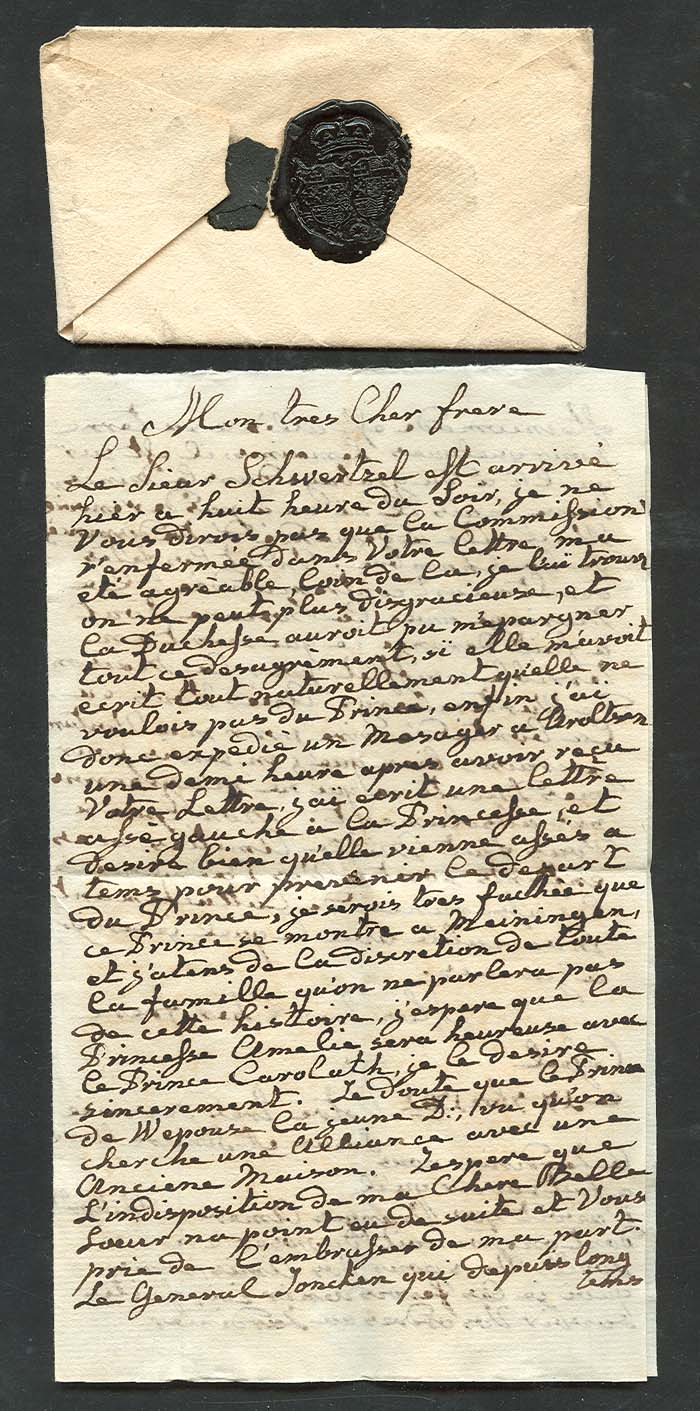 Mon tres Cher frere
Le Sieur Schwertzel est arrivé
hier a huit heure du Soir, je ne
Vous dirois pas que la Commission
r'enfermée dans Votre lettre m'a
eté agréable, loin de la, je l'ai trouvé
on ne peut plus disgracieuse, et
la Duchesse auroit pu m'epargner
tout ce desagrément, si elle m'avoit
ecrit tout naturellement qu'elle ne
voulois pas du Prince, enfin j'ai
donc expedié un Mesager a Aroltsen
une demi heure apres avoir reçu
Votre Lettre, j'ai ecrit une lettre
assé gauche à la Princesse, et
desire bien qu'elle vienne assés a
tems pour prevenir le depart
du Prince, je serois tres fachée que
ce Prince se montre a Meiningen,
et j'atens de la discretion de toute
la famille qu'on ne parlera pas
de cette histoire, j'espere que la
Princesse Amelie sera heureuse avec
le Prince Carolath, je le desire
sincerement. Je doute que le Prince
de W epouse la jeune D:, vu qu'on
cherche une Alliance avec une
Anciene Maison. J'espere que
L'indisposition de ma Chere Belle
Soeur na point eu de suite et Vous
prie de l'embrasser de ma part.
Le General Joncken qui depuis long
tems